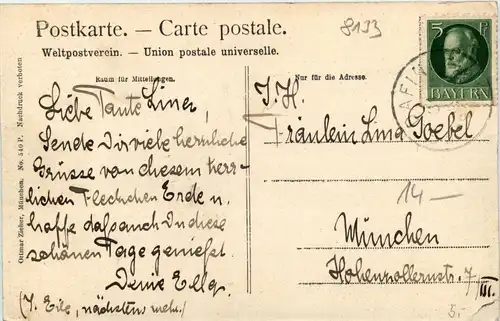 Postkarte. — Carte postale.
Weltpostverein. — Union postale universelle.
8133
5 Pf
BAYERN
Raum für Mitteilungen.
Nur für die Adresse.
Liebe Tante Liner,
Sende Dir viele herzliche
Grüsse von diesem herr-
lichen Fleckchen Erde u.
hoffe dass auch Du diese
schönen Tage geniesst.
Deine Elly.
(I. Eile, nächstens mehr.)
I. H.
Fräulein Lina Goebel
14 —
München
Hohenzollernstr. 7/III.
5.-
Ottmar Zieher, München. No. 540 P. Nachdruck verboten